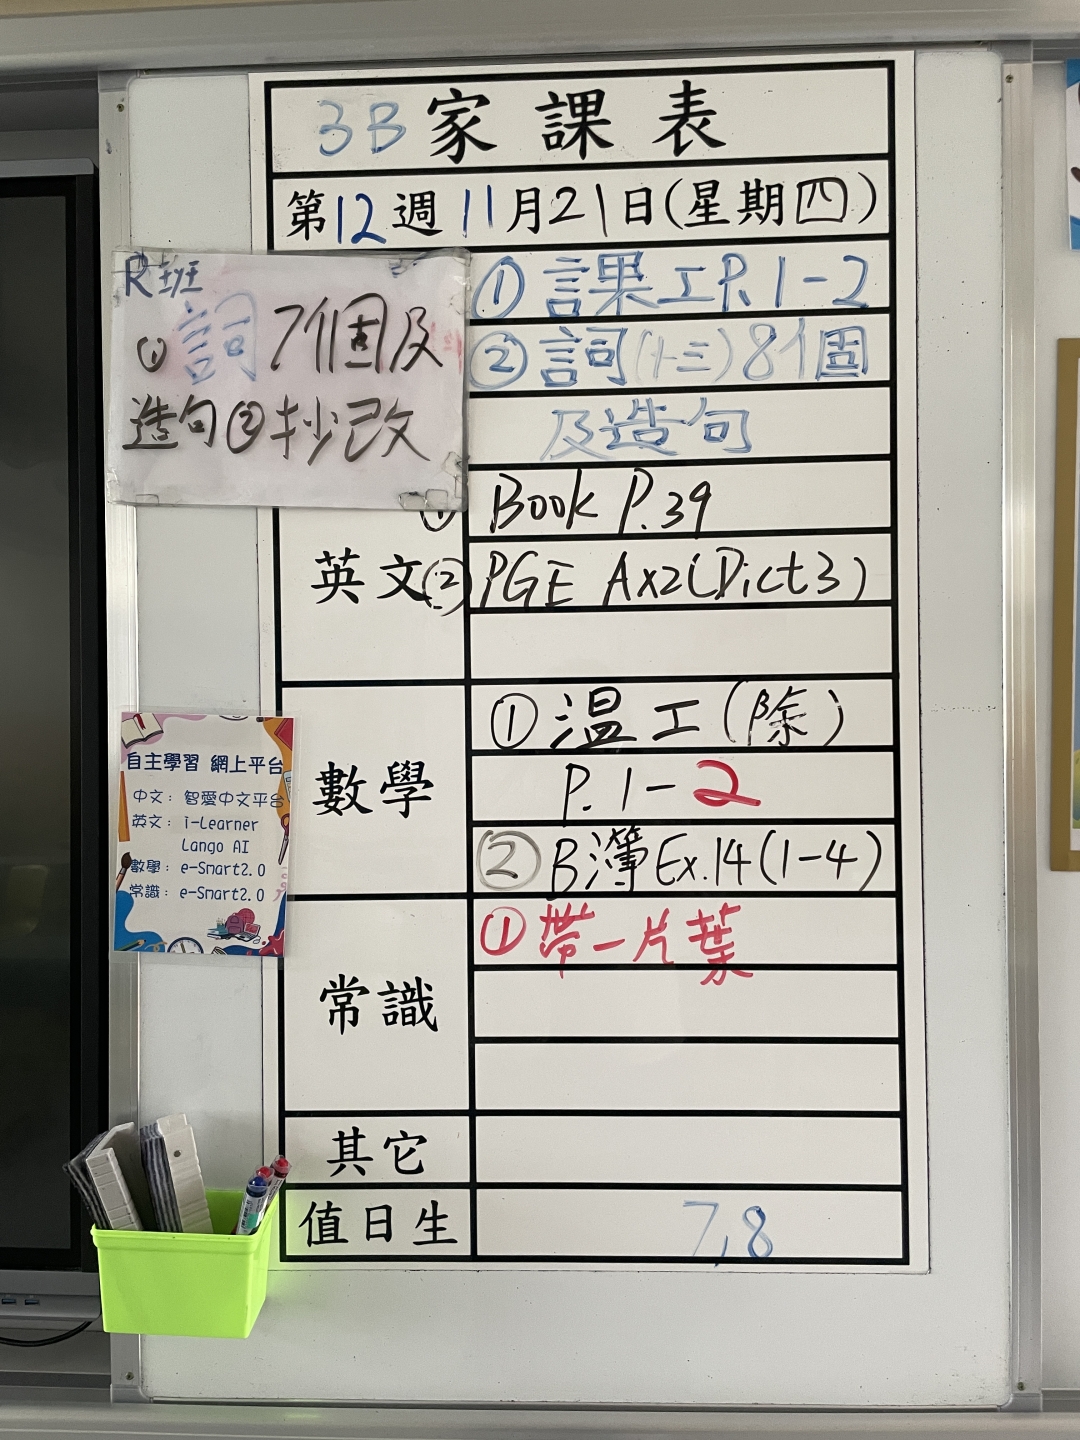 3B 家課表
第12週 11月21日(星期四)
R班
① 詞 7個及
造句 ② 抄改
① 課工P.1-2
② 詞(十三)8個
及造句
英文
① Book P.39
② PGE Ax2(Dict3)
數學
① 溫工(除)
P.1-2
② B簿 Ex.14(1-4)
常識
① 帶一片葉
其它
值日生
7,8
自主學習 網上平台
中文： 智愛中文平台
英文： i-Learner
Lango AI
數學： e-Smart2.0
常識： e-Smart2.0